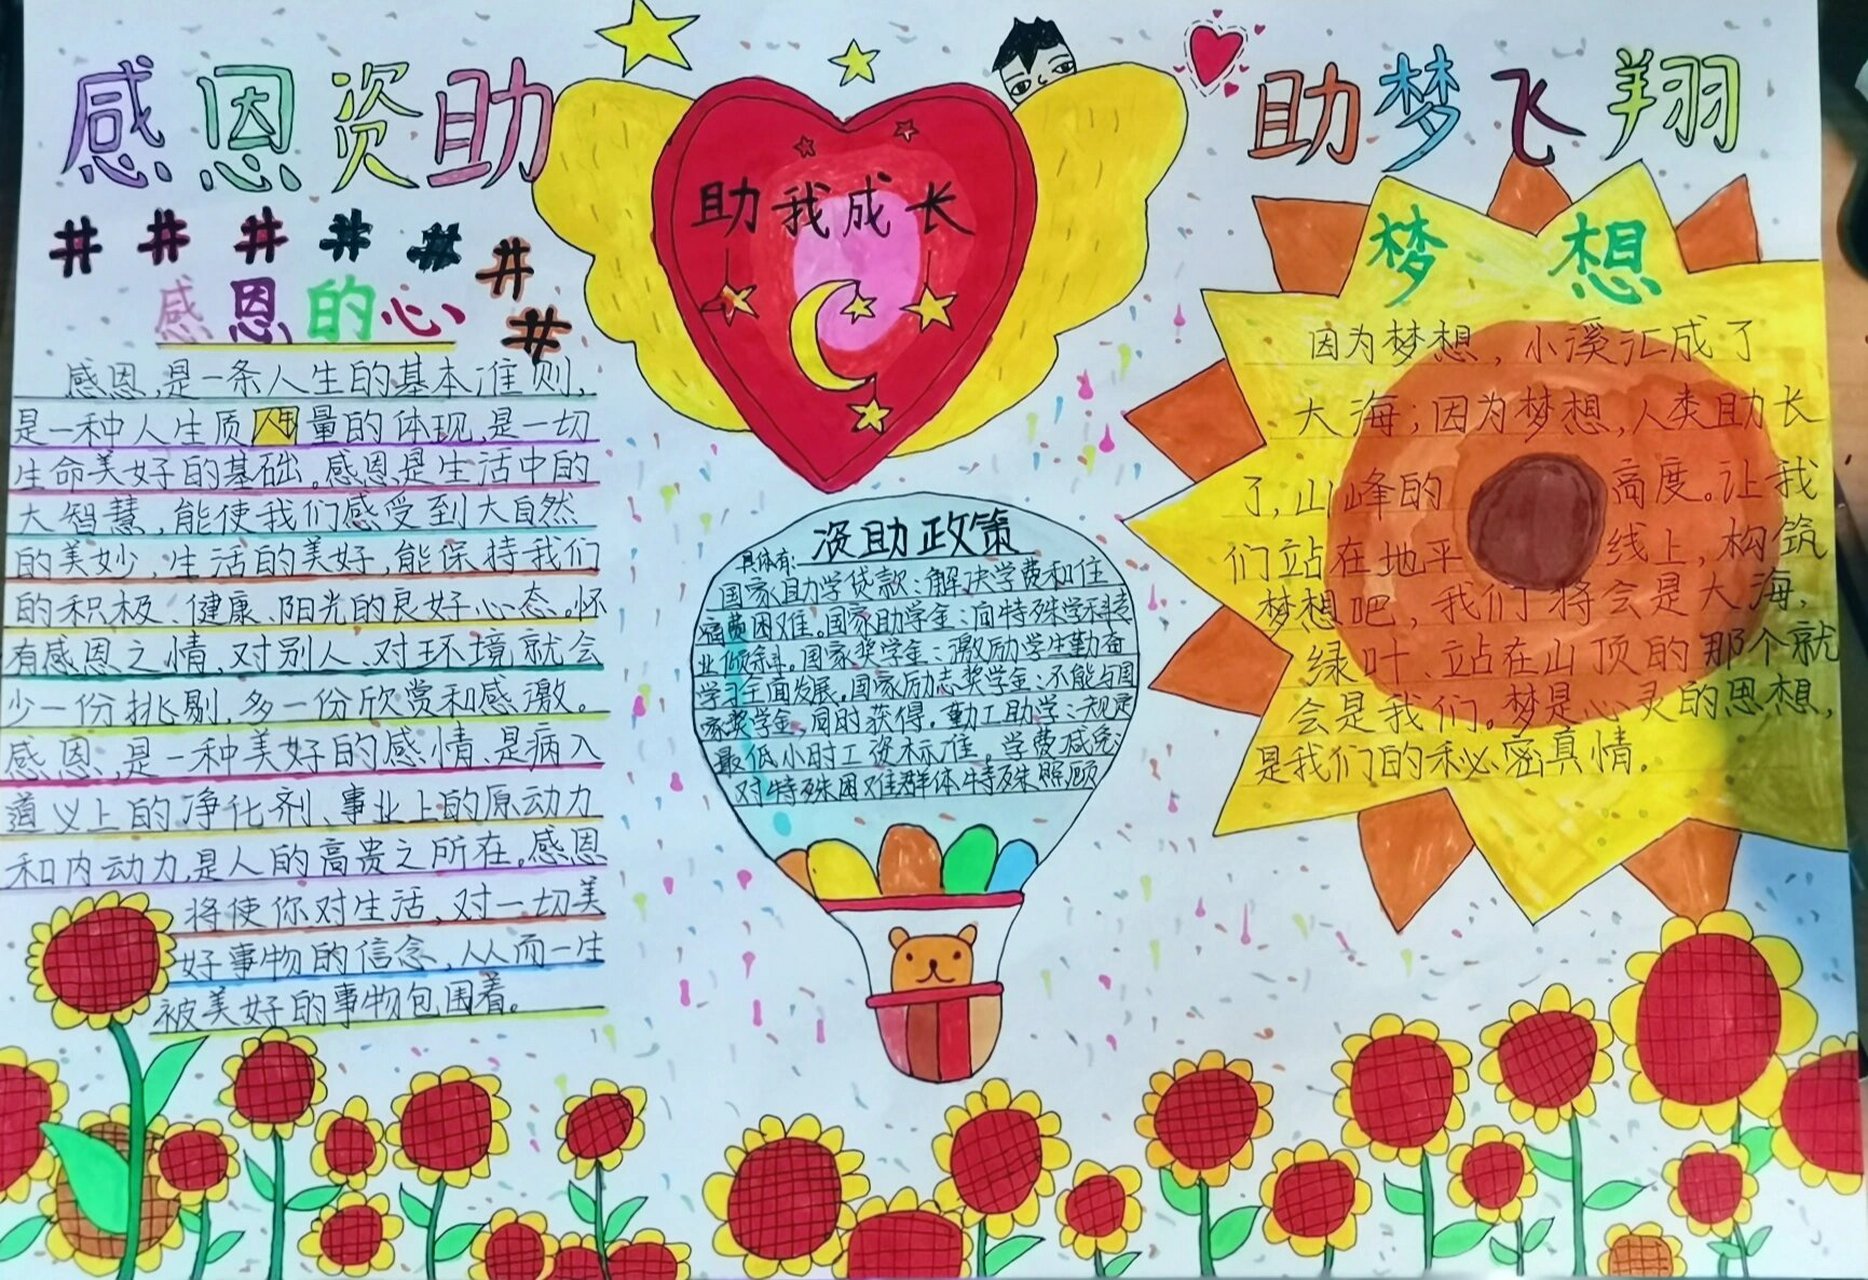 感恩资助
助梦飞翔
助我成长
# # # # # # #
感恩的心
感恩,是一条人生的基本准则,
是一种人生质量的体现,是一切
生命美好的基础。感恩是生活中的
大智慧,能使我们感受到大自然
的美妙,生活的美好,能保持我们
的积极、健康、阳光的良好心态。怀
有感恩之情,对别人、对环境就会
少一份挑剔,多一份欣赏和感激。
感恩,是一种美好的感情、是病入
道义上的净化剂、事业上的原动力
和内动力,是人的高贵之所在。感恩
将使你对生活、对一切美
好事物的信念,从而一生
被美好的事物包围着。
资助政策
具体有:
国家助学贷款:解决学费和住
宿费困难。国家助学金:向特殊学科专
业倾斜。国家奖学金:激励学生勤奋
学习全面发展。国家励志奖学金:不能与国
家奖学金,同时获得。勤工助学:规定
最低小时工资标准。学费减免:
对特殊困难群体特殊照顾
梦想
因为梦想,小溪汇成了
大海;因为梦想,人类助长
了,山峰的高度。让我
们站在地平线上,构筑
梦想吧,我们将会是大海,
绿叶、站在山顶的那个就
会是我们。梦是心灵的思想,
是我们的秘密真情.